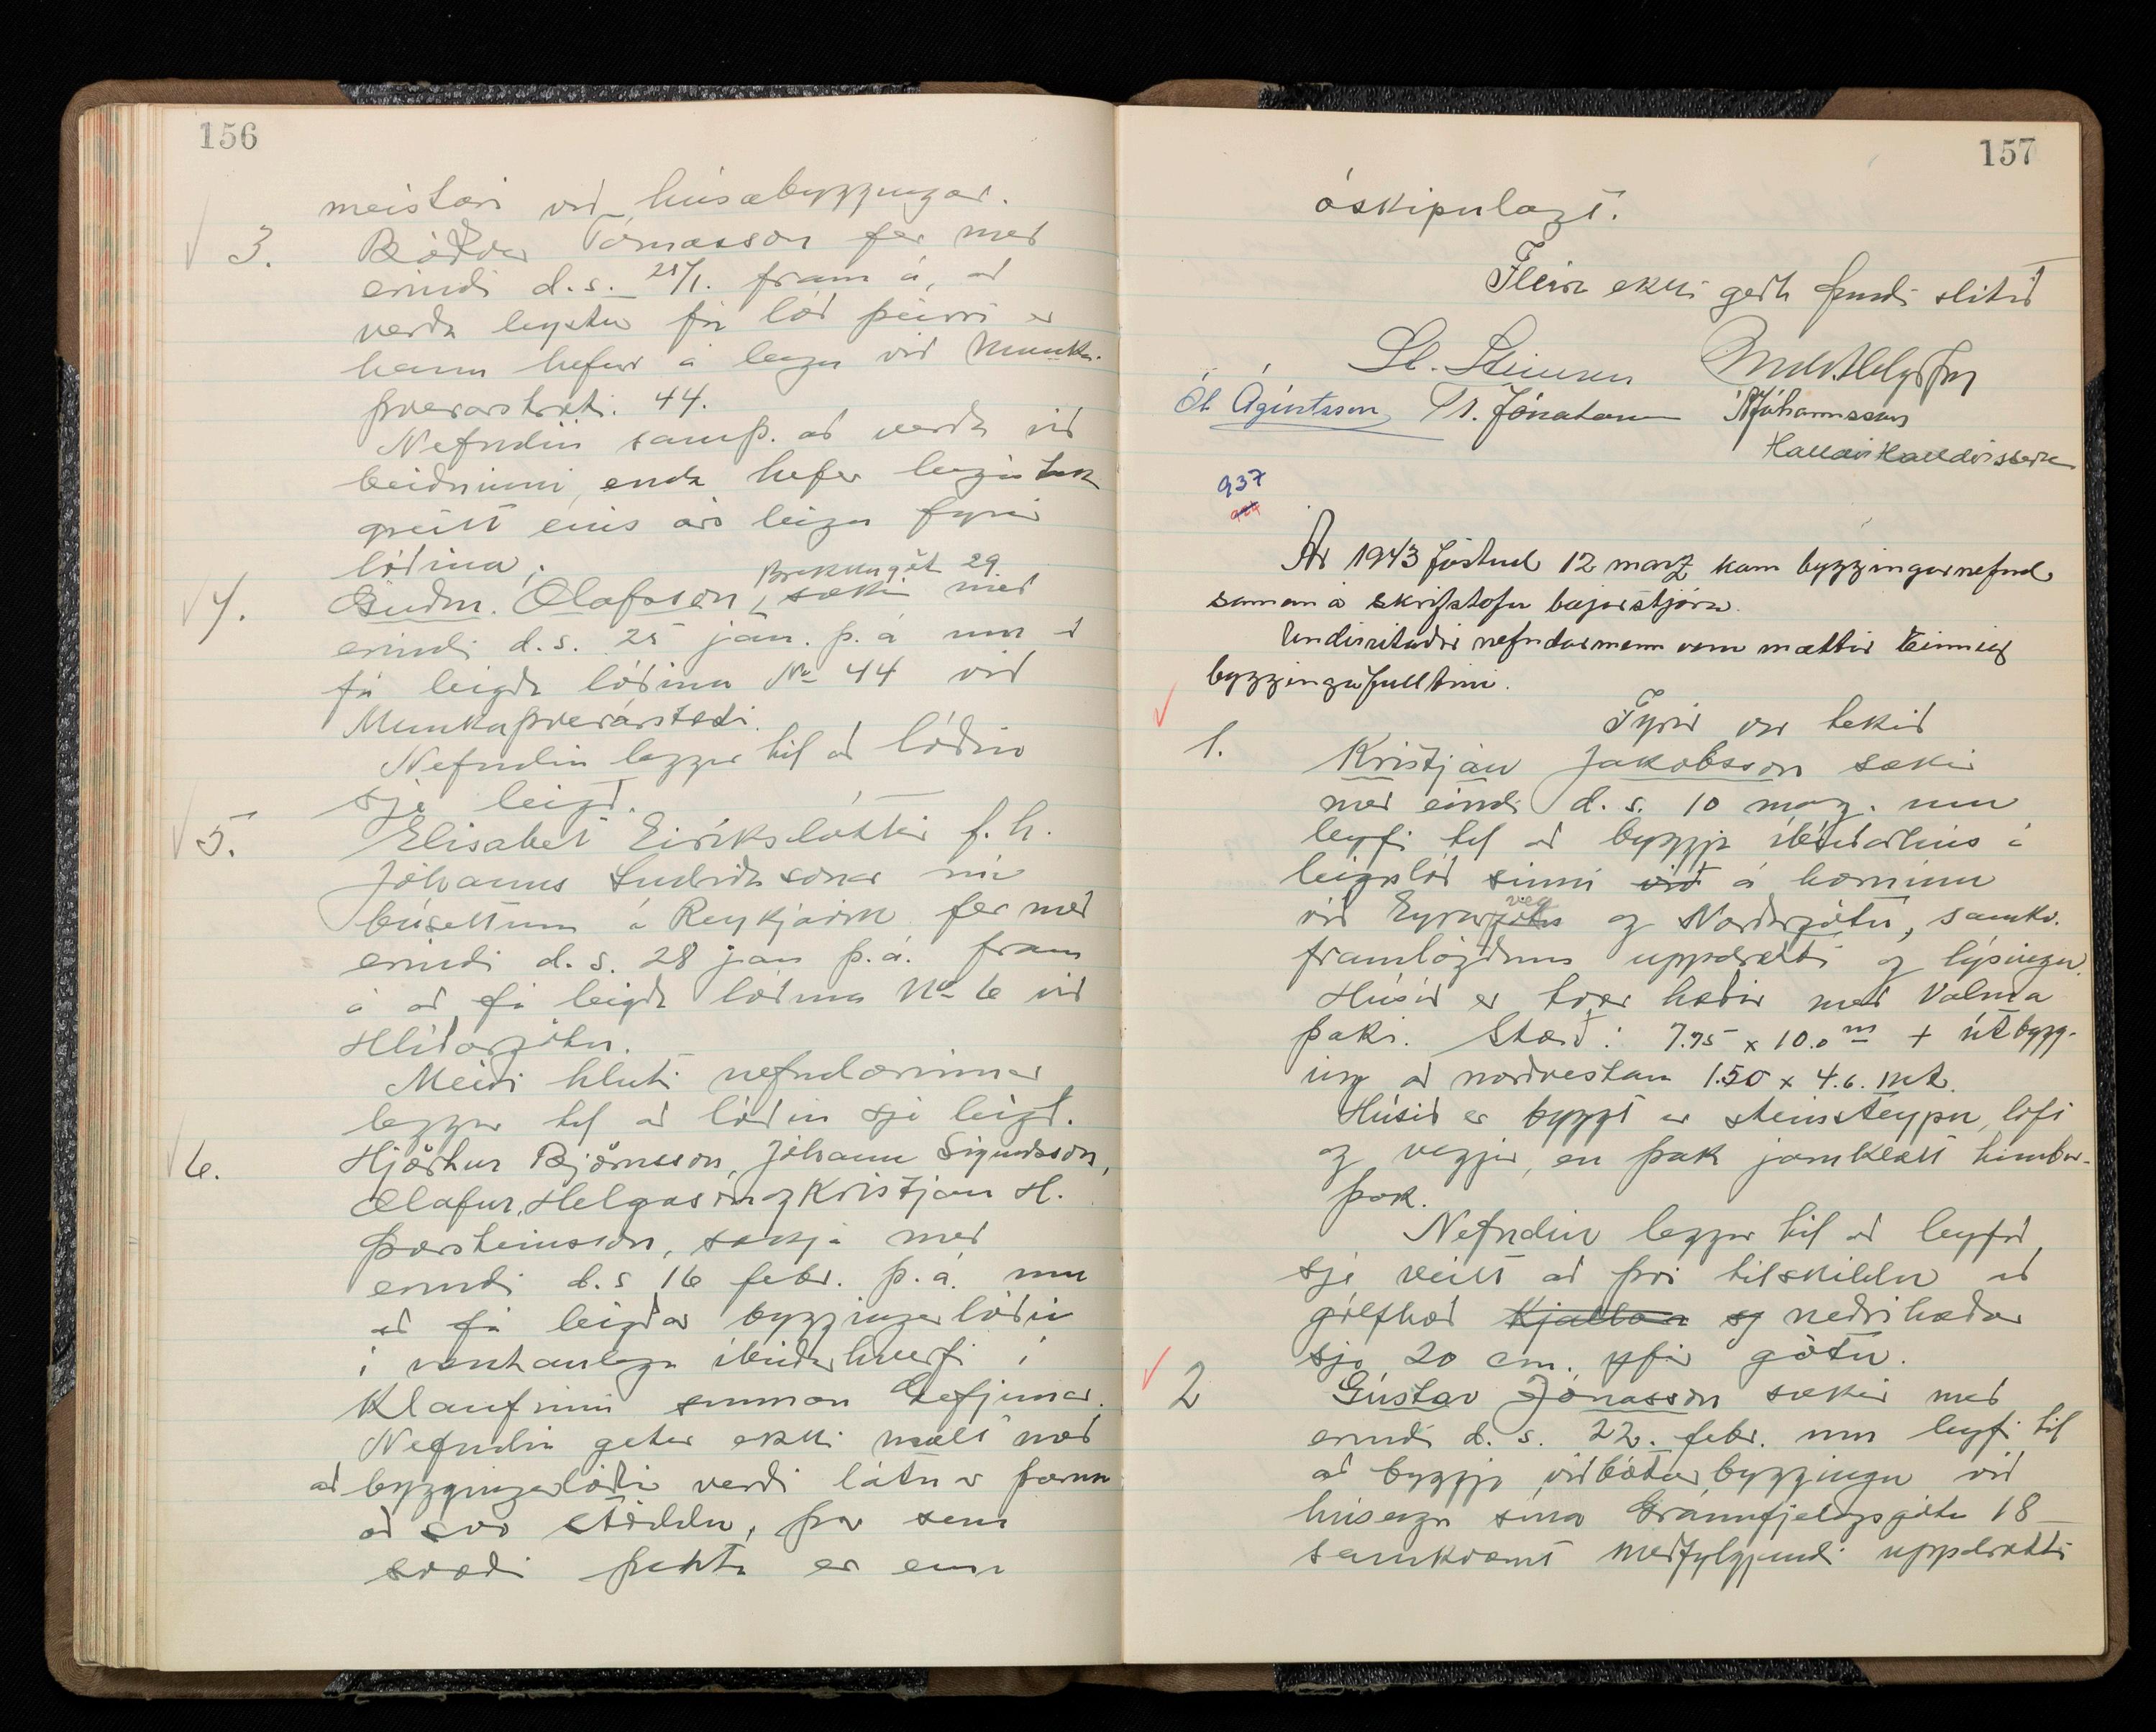 156
meistari við húsabyggingar.
3. Böðvar Tómasson fer með
erindi d.s. 25/1. fram á, að
verða leystur frá lóð þeirri er
hann hefur á leigu við Munka-
þverárstræti. 44.
Nefndin samþ. að verða við
beiðninni, enda hefir leigutaki
greitt eins árs leigu fyrir
lóðina.
Brekkugöt 29
4. Guðm. Ólafsson, sækir með
erindi d.s. 25 jan. þ.á um að
fá leigða lóðina No 44 við
Munkaþverárstræti.
Nefndin leggur til að lóðin
sje leigð.
5. Elísabet Eiríksdóttir f.h.
Jóhanns Indriðasonar nú
búsettum í Reykjavík fer með
erindi d.s. 28 jan þ.á. fram
á að fá leigða lóðina No 6 við
Hlíðargötu.
Meiri hluti nefndarinnar
leggur til að lóðin sje leigð.
6. Hjörtur Björnsson, Jóhann Sigurðsson,
Ólafur Helgason og Kristján H.
Þorsteinsson, sækja með
erindi d.s 16 febr. þ.á. um
að fá leigðar byggingarlóðir
í væntanlegu íbúðarhverfi í
Klaufinni sunnan Gefjunar.
Nefndin getur ekki mælt með
að byggingarlóðir verði látnar þarna
að svo stöddu, þar sem
svæði þetta er enn
157
óskipulagt.
Fleira ekki gert fundi slitið
St. Steinsen
Ól. Ágústsson Tr. Jónatans Jóhannsson
Halldór Halldórsson
937
Ár 1943 föstud 12 marz kom byggingarnefnd
saman á skrifstofu bæjarstjóra.
Undirritaðir nefndarmenn voru mættir einnig
byggingafulltrúi.
Fyrir var tekið
1. Kristján Jakobsson sækir
með erindi d.s. 10 marz. um
leyfi til að byggja íbúðarhús á
leigulóð sinni við á horninu
veg
við Eyrargötu og Norðurgötu, samkv.
framlögðum uppdrætti og lýsingu.
Húsið er tvær hæðir með Valma
þaki. Stærð: 7.75 x 10.0 m + útbygg-
ing að norðvestan 1.50 x 4.6. mt.
Húsið er byggt úr steinsteypu, loft
og veggir, en þak járnklætt timbur-
þak.
Nefndin leggur til að leyfið
sje veitt að því tilskildu að
gólfhæð Kjallara og neðri hæðar
sje 20 cm. yfir götu.
2 Gústav Jónasson sækir með
erindi d.s. 22. febr. um leyfi til
að byggja viðbótarbyggingu við
húseign sína Gránufjelagsgötu 18
samkvæmt meðfylgjandi uppdrætti